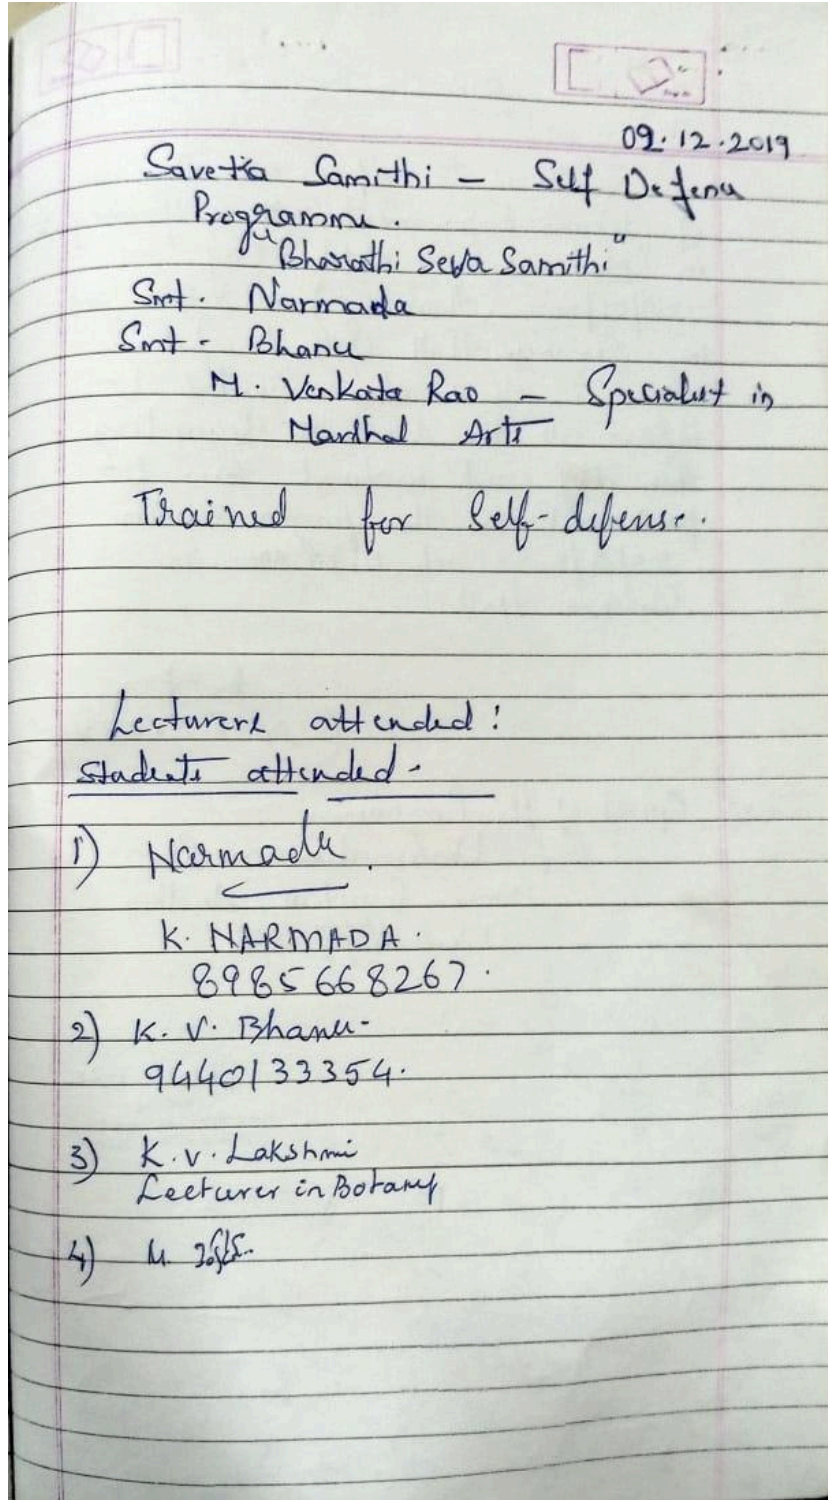 09.12.2019
Savetia Samithi - Self Defence
Programme.
"Bharathi Seva Samithi"
Smt. Narmada
Smt - Bhanu
M. Venkata Rao - Specialist in
Marthal Arts
Trained for Self-defense.
Lecturers attended:
Students attended.
1) Narmada.
K. NARMADA.
8985668267.
2) K. V. Bhanu-
9440133354.
3) K.V. Lakshmi
Lecturer in Botany
4) M.